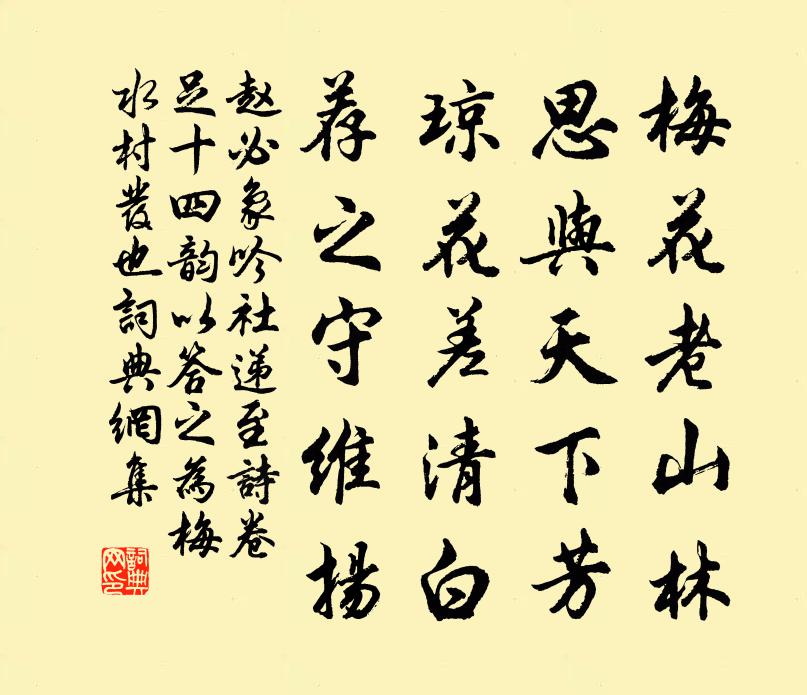 梅花老山林
思與天下芳
琼花差清白
荐之守維揚
赵必象吟社递至詩卷
足十四韵以答之為梅
水村發也詞典網集
詞典网印